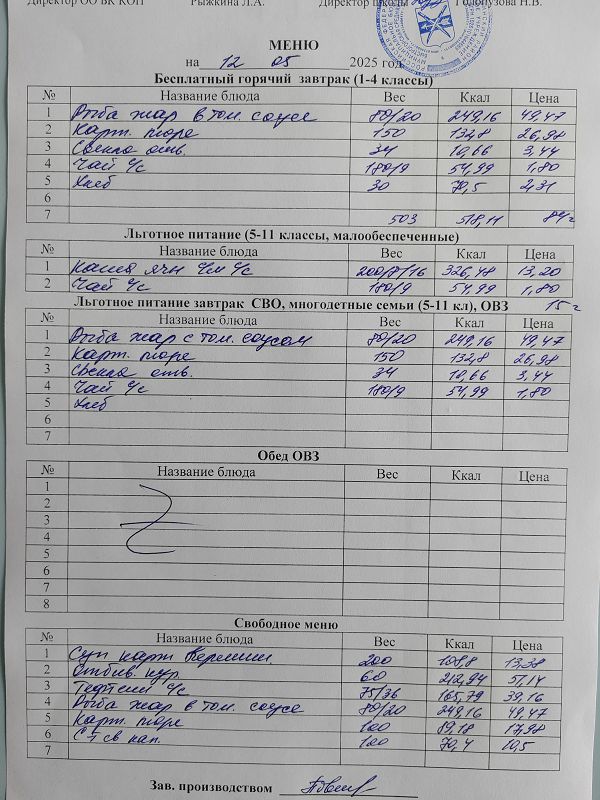 Директор ОО ВК КОП Рыжкина Л.А. Директор школы Голопузова Н.В.
МЕНЮ
на 12 05 2025 год
Бесплатный горячий завтрак (1-4 классы)
№ Название блюда Вес Ккал Цена
1 Рыба жар в том. соусе 80/20 249,16 49,47
2 Карт. пюре 150 132,8 26,98
3 Свекла отв. 34 10,66 3,44
4 Чай с/с 180/9 54,99 1,80
5 Хлеб 30 70,5 2,31
6
7 503 518,11 84
Льготное питание (5-11 классы, малообеспеченные)
№ Название блюда Вес Ккал Цена
1 Каша ячн с/м с/с 200/7/16 326,48 13,20
2 Чай с/с 180/9 54,99 1,80
Льготное питание завтрак СВО, многодетные семьи (5-11 кл), ОВЗ 15
№ Название блюда Вес Ккал Цена
1 Рыба жар с том. соусом 80/20 249,16 49,47
2 Карт. пюре 150 132,8 26,98
3 Свекла отв. 34 10,66 3,44
4 Чай с/с 180/9 54,99 1,80
5 Хлеб
6
7
Обед ОВЗ
№ Название блюда Вес Ккал Цена
1
2
3
4
5
6
7
8
Свободное меню
№ Название блюда Вес Ккал Цена
1 Суп карт 200 108,8 13,38
2 Отбив. кур 60 212,94 51,14
3 Тефтели с/с 75/36 165,79 39,16
4 Рыба жар в том. соусе 80/20 249,16 49,47
5 Карт. пюре 100 89,18 17,98
6 св кап. 100 70,4 10,5
7
Зав. производством